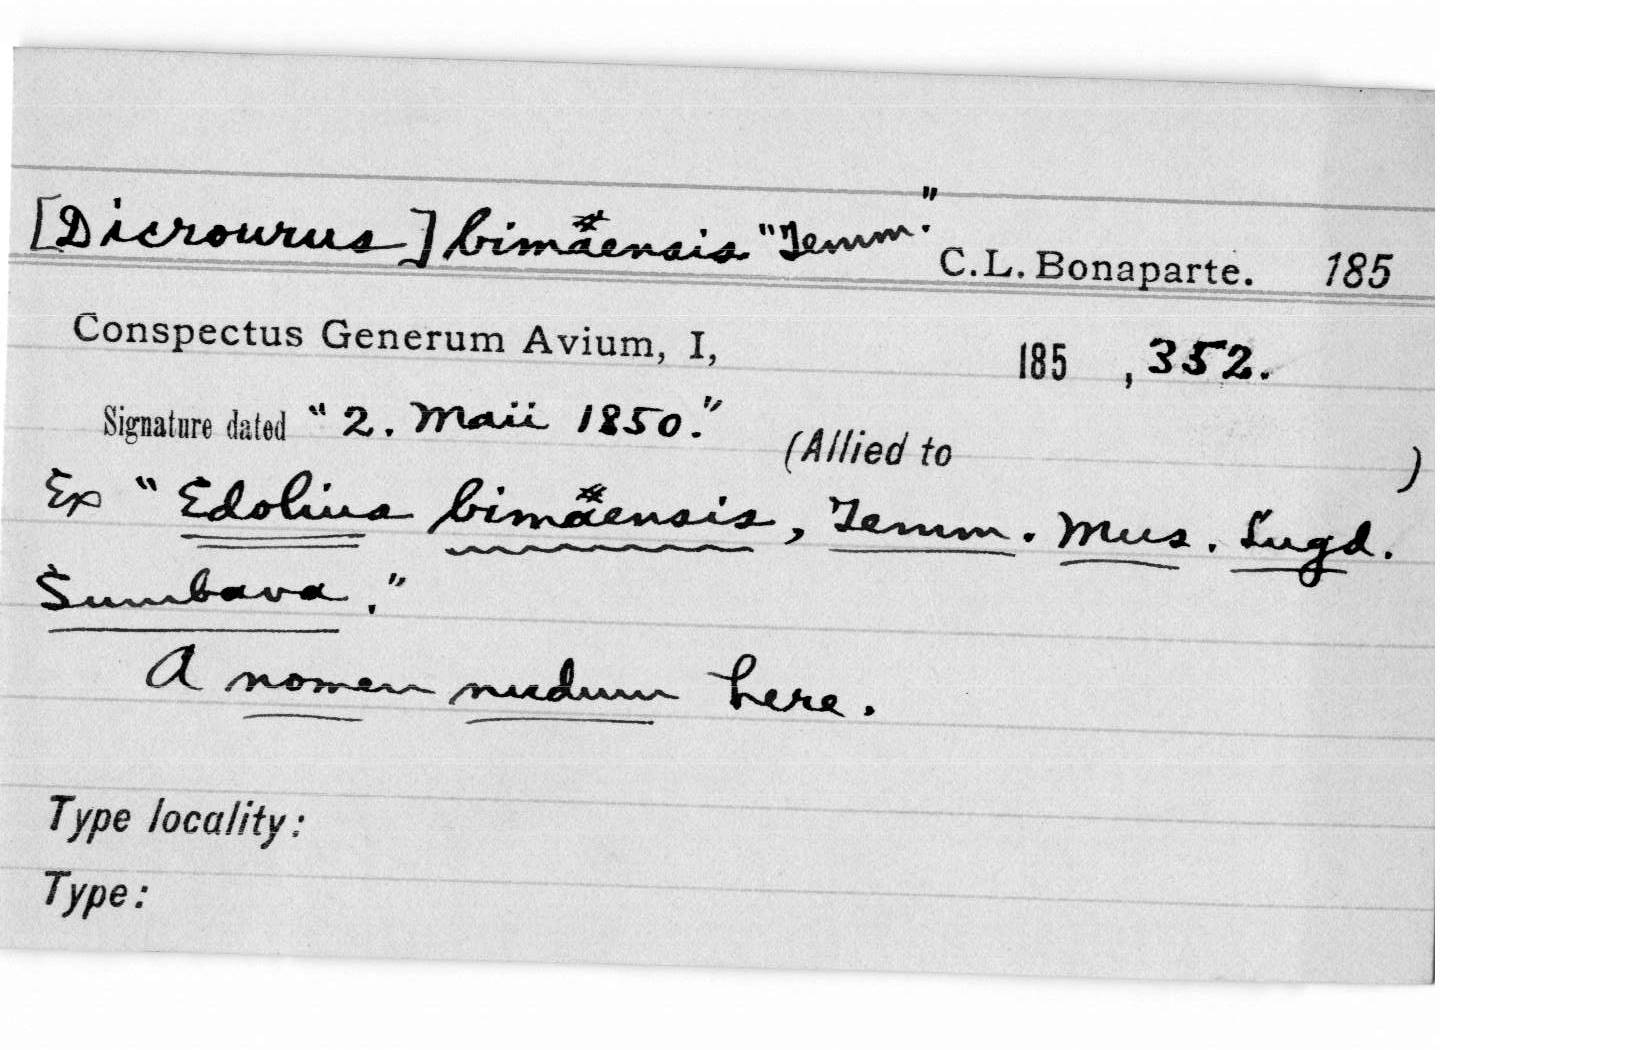 [Dicrourus] bimäensis "Temm." C.L. Bonaparte. 185
Conspectus Generum Avium, I, 185 , 352.
Signature dated "2. Maii 1850." (Allied to )
Ex "Edolius bimäensis, Temm. Mus. Lugd.
Sumbava."
A nomen nudum here.
Type locality:
Type: